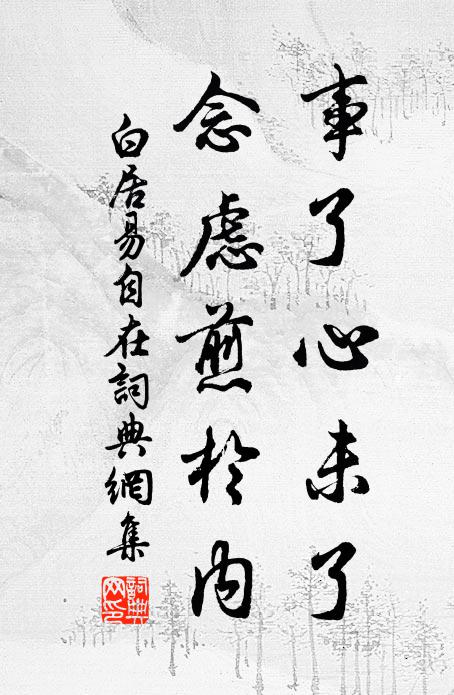 事了心未了
念慮煎於內
白居易自在詞典網集
詞典網印